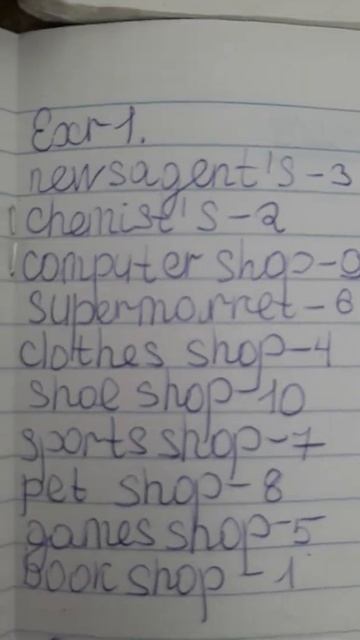 Exr 1.
newsagent's-3
chemist's-2
computer shop-9
supermarket-6
clothes shop-4
shoe shop-10
sports shop-7
pet shop-8
games shop-5
Book shop-1